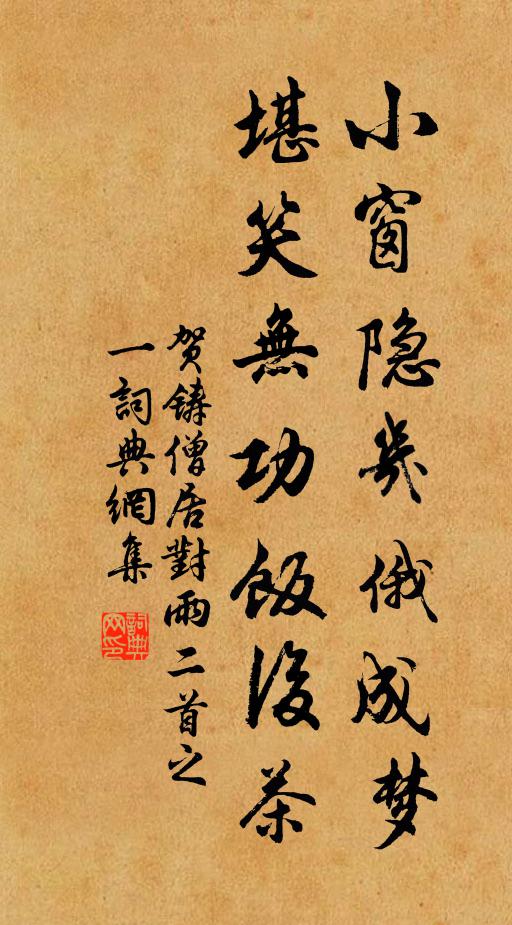 小窗隐几俄成梦
堪笑無功飯後茶
贺鑄僧居對雨二首之
一詞典網集
詞典
网印